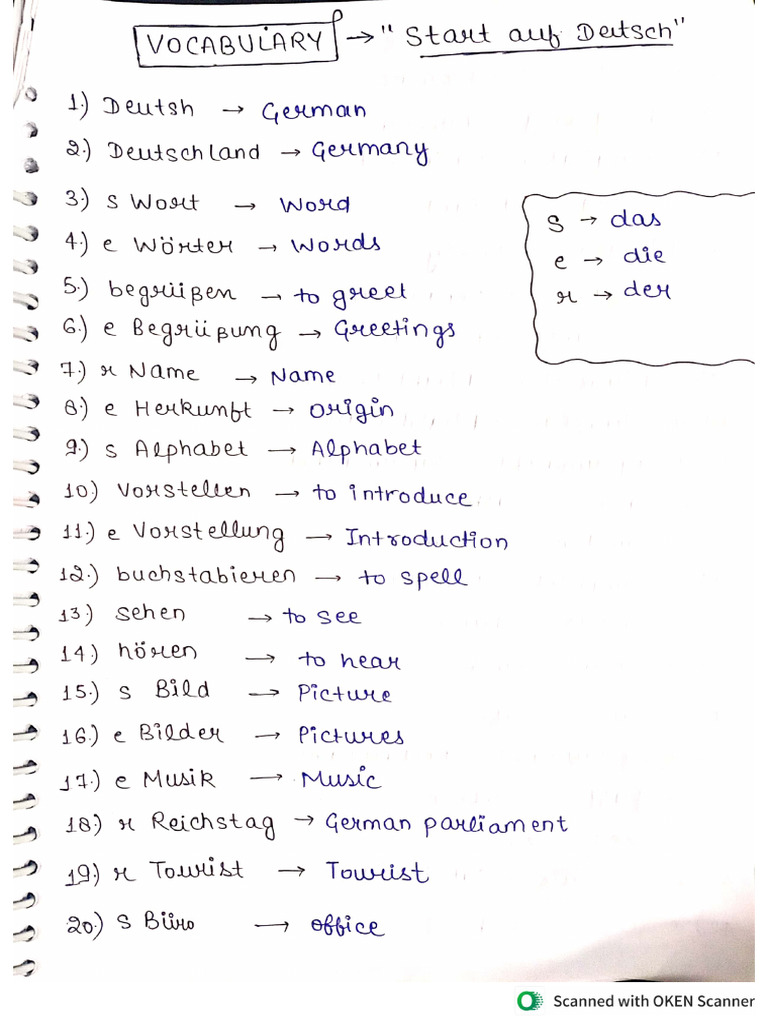 VOCABULARY → "Start auf Deutsch"
1.) Deutsh → German
2.) Deutschland → Germany
3.) s Wort → Word
4.) e Wörter → Words
5.) begrüßen → to greet
6.) e Begrüßung → Greetings
7.) r Name → Name
8.) e Herkunft → origin
9.) s Alphabet → Alphabet
10.) Vorstellen → to introduce
11.) e Vorstellung → Introduction
12.) buchstabieren → to spell
13.) sehen → to see
14.) hören → to hear
15.) s Bild → Picture
16.) e Bilder → Pictures
17.) e Musik → Music
18.) r Reichstag → German parliament
19.) r Tourist → Tourist
20.) s Büro → office
s → das
e → die
r → der
Scanned with OKEN Scanner